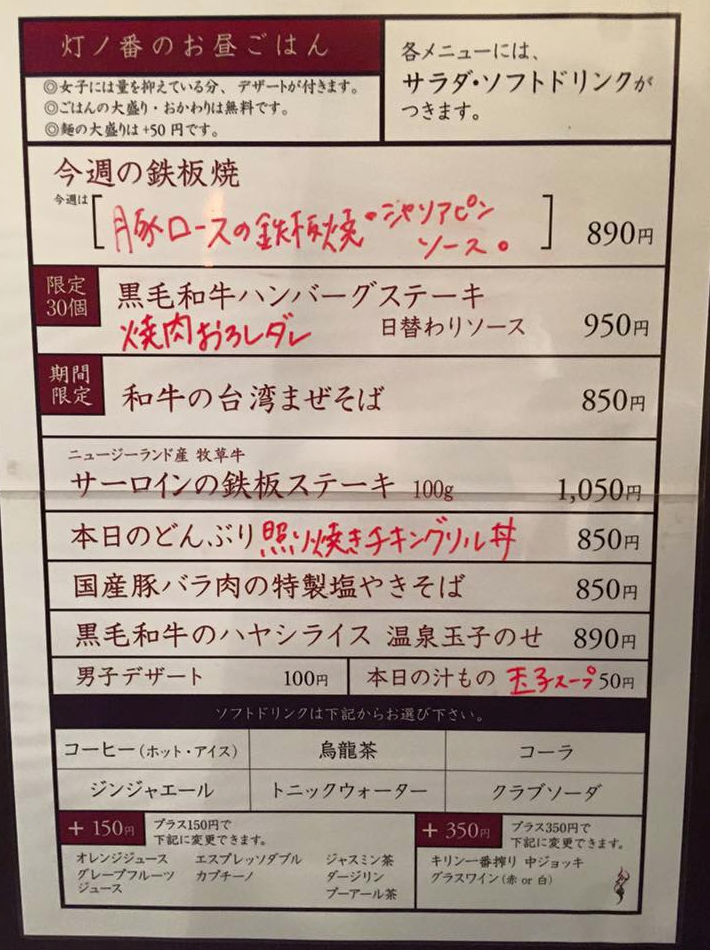 灯ノ番のお昼ごはん
◎女子には量を抑えている分、デザートが付きます。
◎ごはんの大盛り・おかわりは無料です。
◎麺の大盛りは+50円です。
各メニューには、
サラダ・ソフトドリンクが
つきます。
今週の鉄板焼
今週は
豚ロースの鉄板焼・シャリアピン
ソース。
890円
限定
30個
黒毛和牛ハンバーグステーキ
焼肉おろしダレ 日替わりソース 950円
期間
限定
和牛の台湾まぜそば 850円
ニュージーランド産 牧草牛
サーロインの鉄板ステーキ 100g 1,050円
本日のどんぶり 照り焼きチキングリル丼 850円
国産豚バラ肉の特製塩やきそば 850円
黒毛和牛のハヤシライス 温泉玉子のせ 890円
男子デザート 100円 本日の汁もの 玉子スープ 50円
ソフトドリンクは下記からお選び下さい。
コーヒー(ホット・アイス) 烏龍茶 コーラ
ジンジャエール トニックウォーター クラブソーダ
+150円 プラス150円で
下記に変更できます。
オレンジジュース エスプレッソダブル ジャスミン茶
グレープフルーツ カプチーノ ダージリン
ジュース プーアール茶
+350円 プラス350円で
下記に変更できます。
キリン一番搾り 中ジョッキ
グラスワイン(赤 or 白)